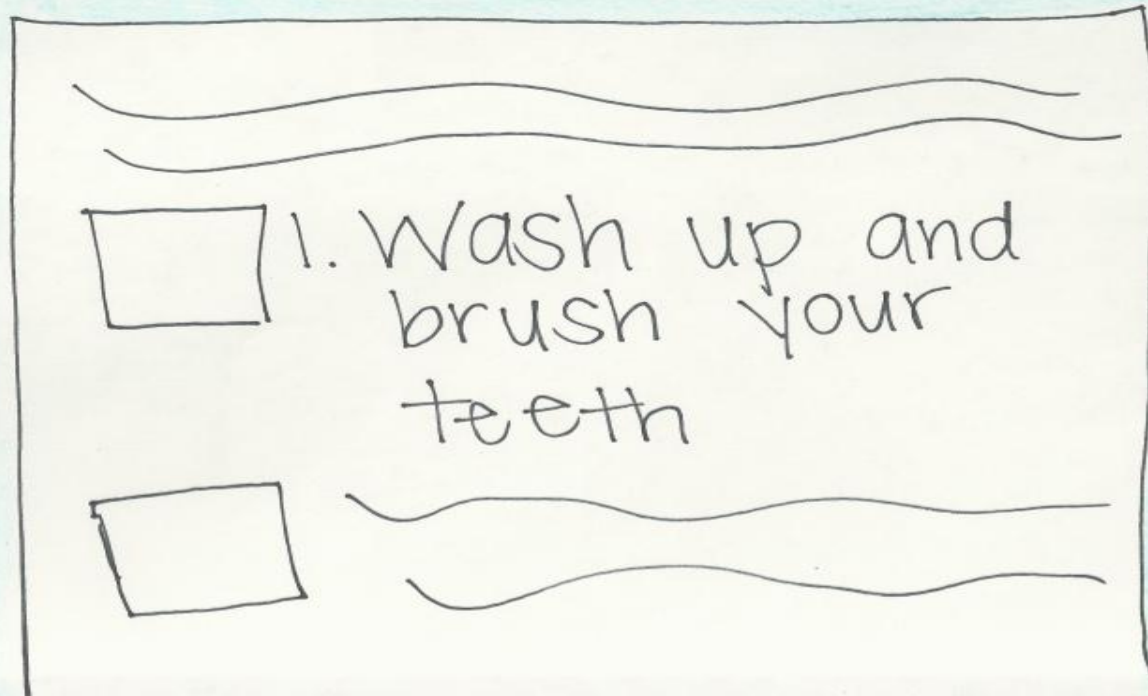 1. Wash up and
brush your
teeth